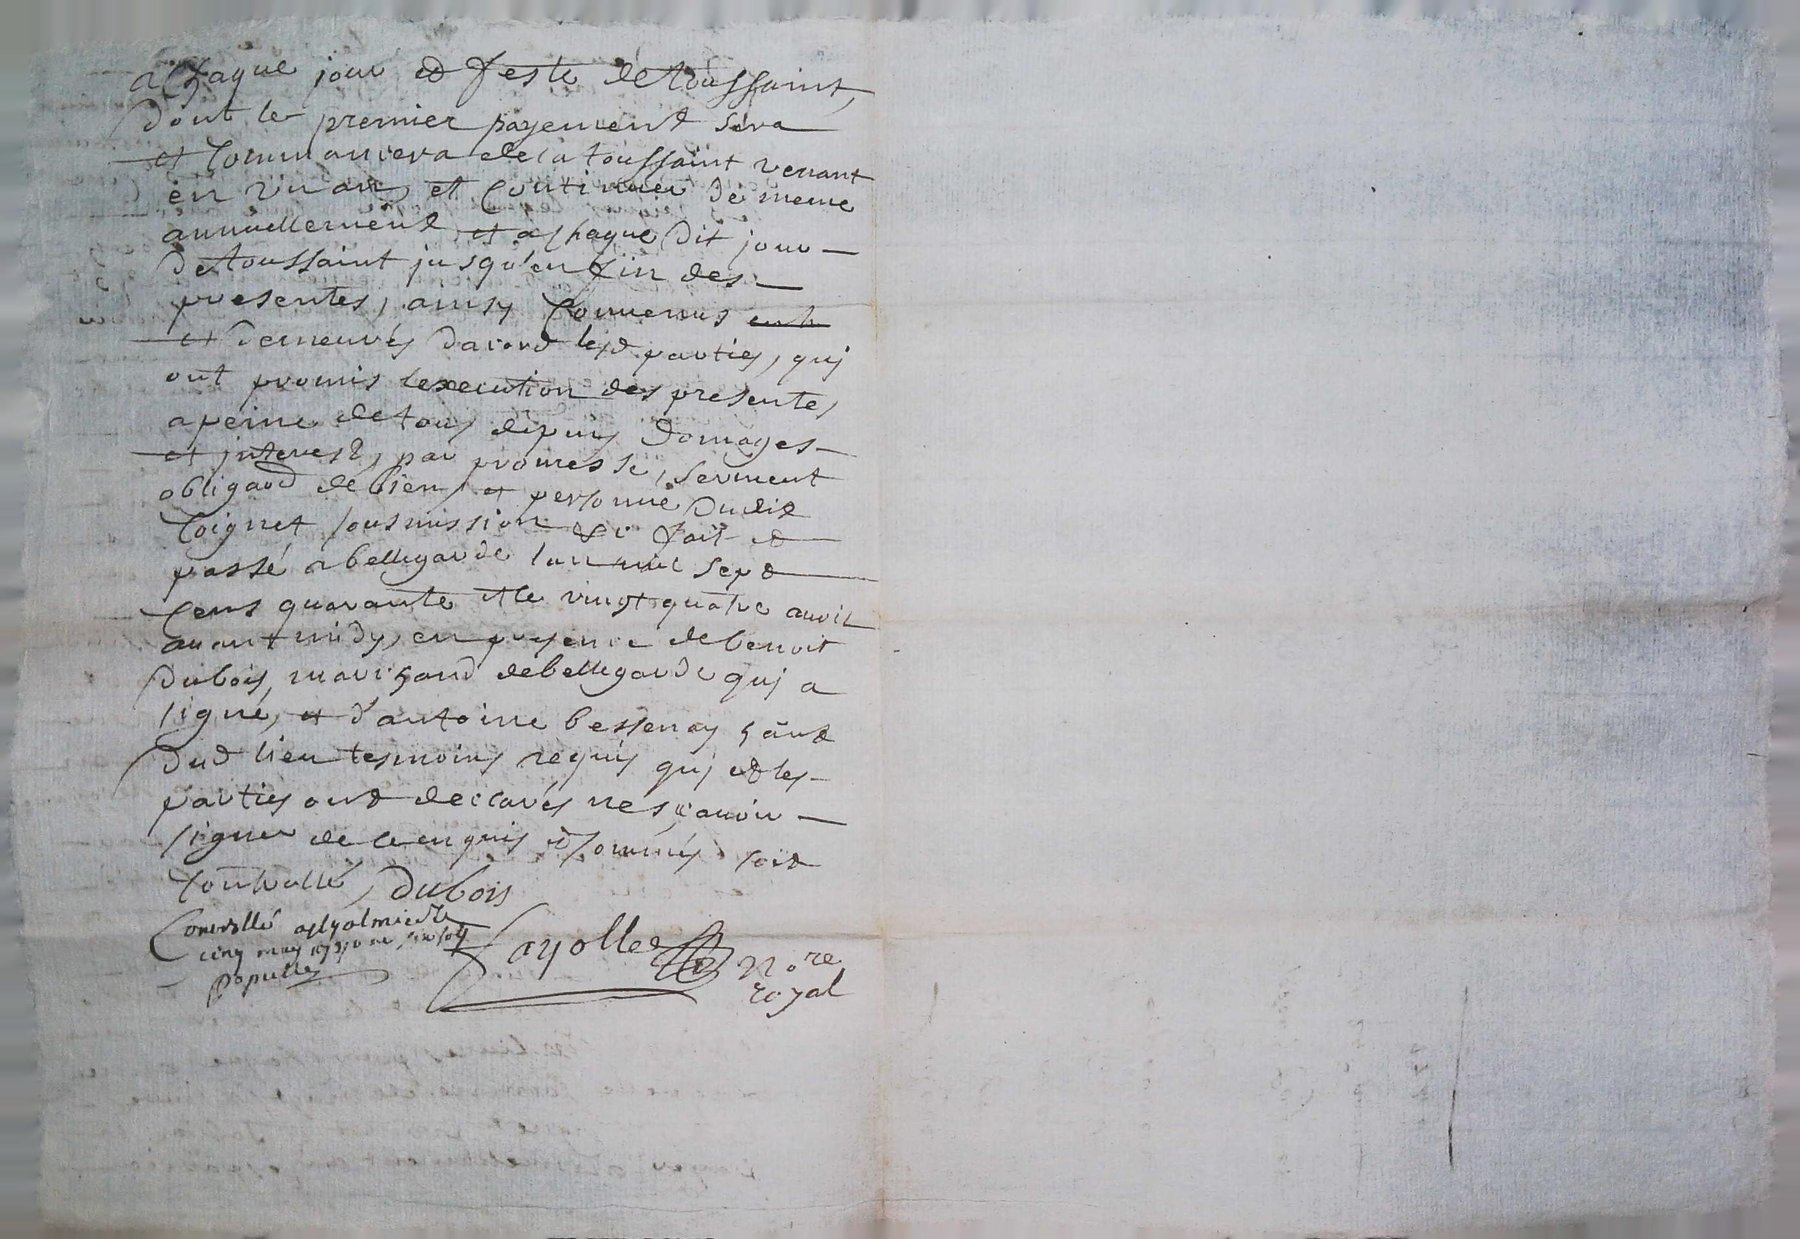 a chaque jour et feste de toussaint,
dont le premier payement sera
et commancera de la toussaint venant
en un an, et continuer de meme
annuellement et a chaque dit jour
de toussaint jusqu'en fin des
presentes, ainsy convenus
et demeurés dacord lesd parties, quj
ont promis lexecution des presentes,
a peine de tous depuis domages
et interest, par promesse, serment
obligaõn de bien et personne dudit
Coignet sousmission &c fait et
passé a bellegarde lan mil sept
cens quarante et le vingt quatre avril
avant midy, en presence de benoit
dubois, marchand de bellegarde quj a
signé, et d'antoine bessenay
dud lieu tesmoins requis quj et les
parties ont declarés ne sçavoir
signer de ce enquis et sommés soit
controllé, Dubois
Controllé a st galmier le
cinq may 1740 six sols
populle
Fayolle Nore
royal